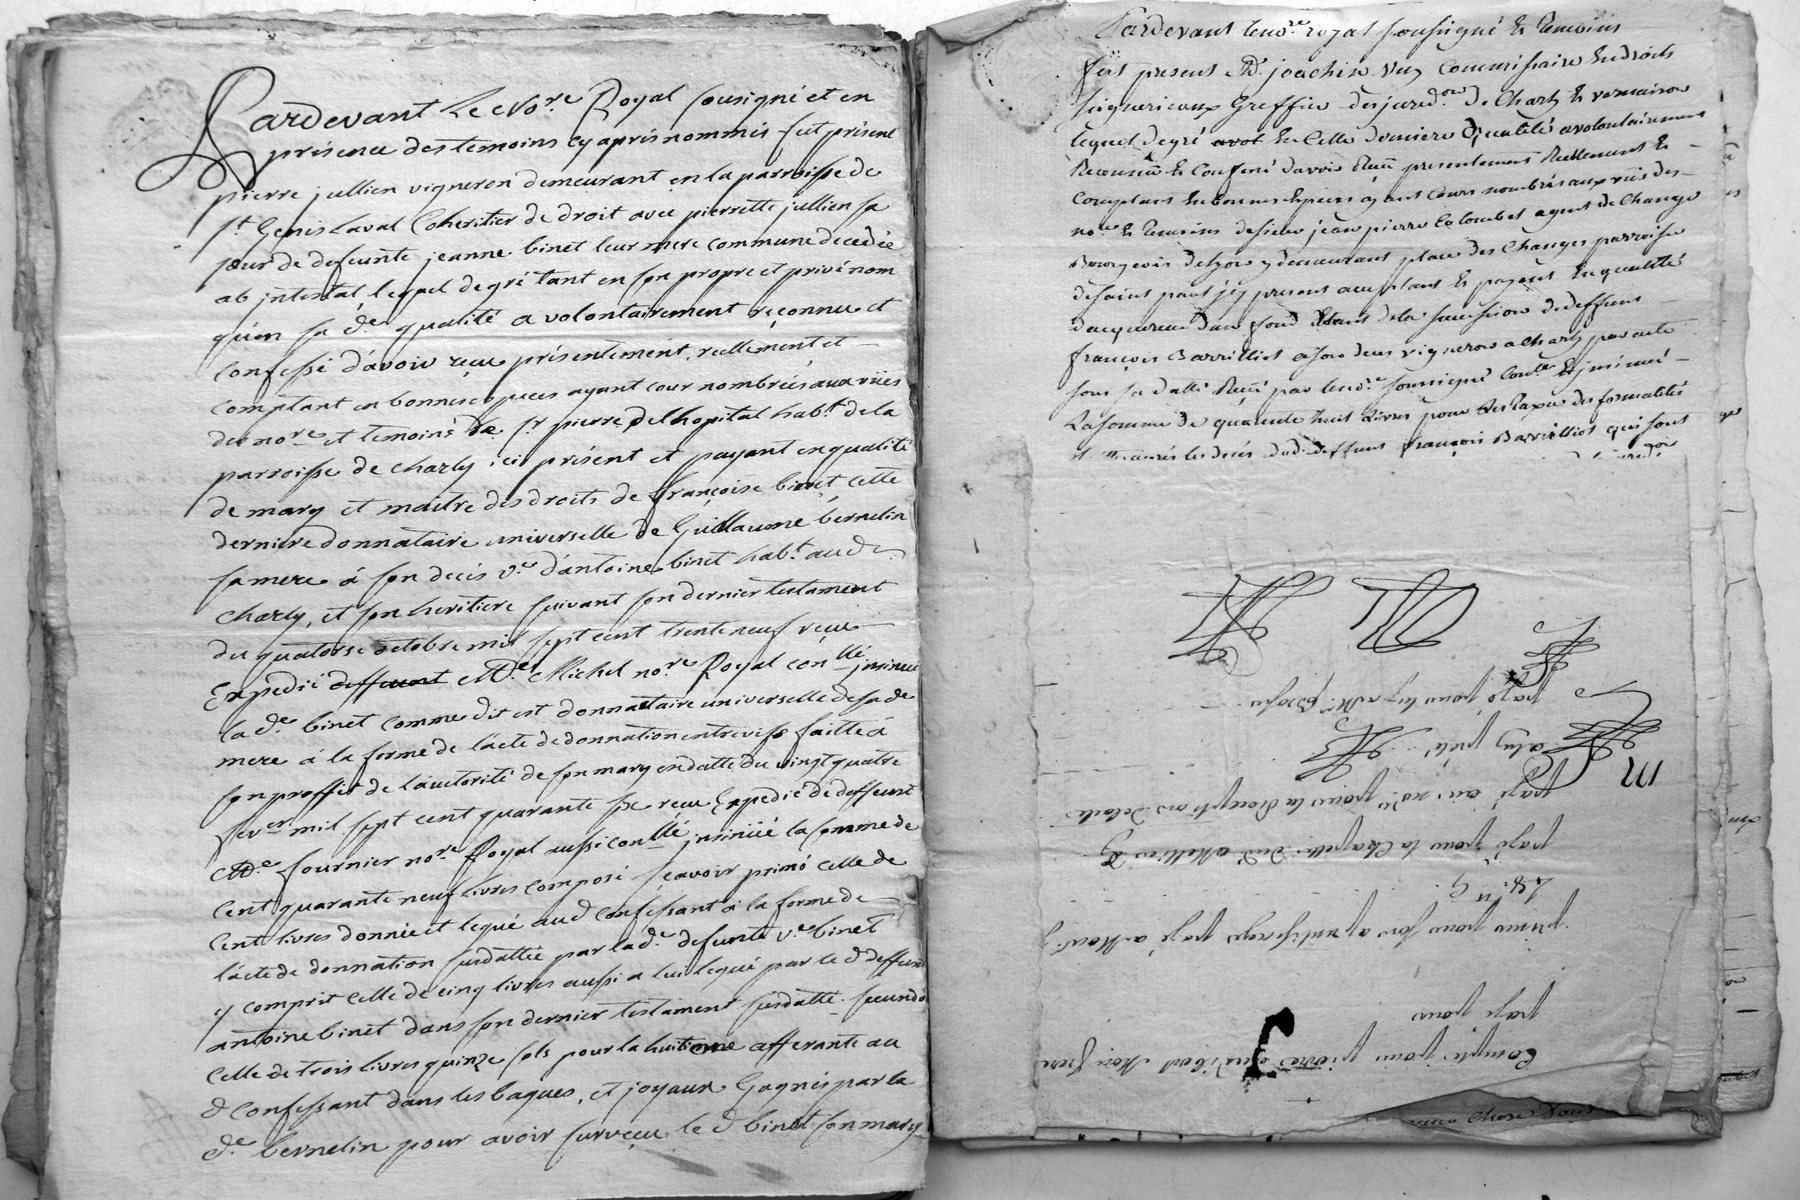 Pardevant Le No.re Royal sousigné et en
présence des temoins cy aprés nommés fut présent
pierre jullien vigneron demeurant en la parroisse de
s.t Genis Laval Coheritier de droit avec pierrette jullien sa
sœur de defeunte jeanne binet leur mere commune decedée
ab jntestat, lequel de gré tant en son propre et privé nom
qu'en sa d.e qualité a volontairement reçonnu et
confessé d'avoir reçu présentement, réellement et
comptant en bonnes especes ayant cour nombrées aux vües
des no.re et temoins de s.r pierre delhopital hab.t de la
parroisse de charly ici présent et payant en qualité
de mary et maitre des droits de françoise binet cette
derniere donnataire universelle de Guillaume bernelin
sa mere à son decés v.e d'antoine binet hab.t aud.
Charly, et son heritiere suivant son dernier testament
du quatorse octobre mil sept cent trente neuf reçu
Expedié deffeunt M.e Michel no.re Royal con.llé jnsinué
la d.e binet comme dit est donnataire universelle de sa d.e
mere à la forme de l'acte de donnation entrevifs faitte à
son proffit de l'autorité de son mary en datte du vingt quatre
fev.er mil sept cent quarante six reçu Expedié de deffeunt
M.e fournier no.re Royal aussi con.llé jnsinüé la somme de
Cent quarante neuf livres composé sçavoir primò celle de
Cent livres donnée et lequé aud confessant à la forme de
l'acte de donnation susdattée par la d.e defeunte v.e binet
y comprit celle de cinq livres aussi a lui lequé par le d. deffeunt
antoine binet dans son dernier testament susdatté secundò
Celle de trois livres quinze sols pour la huitieme afferante au
d confessant dans les bagues, et joyaux Gagnés par la
d.e bernelin pour avoir surveçu le d binet son mary
Pardevant le no.re royal soussigné Et temoins
fut present M.e joachin Commissaire En droits
seigneuriaux Greffier des jurid.on de Charly Et vernaison
lequel de gré En Cette derniere Qualité a volontairement
Reconnu Et Confessé davoir Reçu presentement Reellement Et
Comptant En bonnes Especes ayant Cours nombrés aux vües des
no.re Et temoins de sieur jean pierre Colombet agent de Change
Bourgeois de Lyon y demeurant place des Changes parroisse
de saint paul jcy present acceptant Et payant En qualité
dacquereur dun fond de la succession du deffunt
françois Barrilliot a son deces vigneron a Charly par acte
sous sa datte Reçu par le no.re soussigné Con.llé Et jnsinué
La somme de quarante huit Livres pour Les Taxes des formalités
aprés le decés dud. deffunt françois Barrilliot qui sont
Compte pour pierre mon frere
payé pour
payé pour la Chapelle
payé au no.re pour la
payé pour luy a M.r
Chose dans